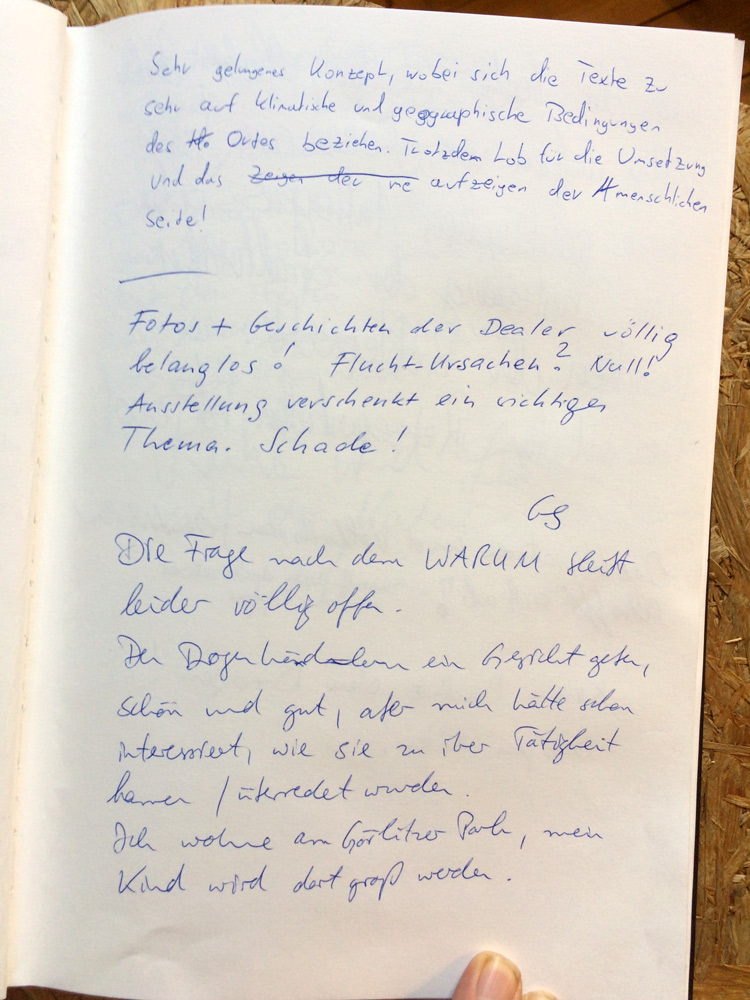 Sehr gelungenes Konzept, wobei sich die Texte zu
sehr auf klimatische und geographische Bedingungen
des Ortes beziehen. Trotzdem Lob für die Umsetzung
und das Zeigen der me aufzeigen der menschlichen
Seite!
Fotos + Geschichten der Dealer völlig
belanglos! Flucht-Ursachen? Null!
Ausstellung verschenkt ein wichtiges
Thema. Schade!
GS
Die Frage nach dem WARUM bleibt
leider völlig offen.
Den Drogenhändlern ein Gesicht geben,
schön und gut, aber mich hätte schon
interessiert, wie sie zu ihrer Tätigkeit
kamen / überredet wurden.
Ich wohne am Görlitzer Park, mein
Kind wird dort groß werden.